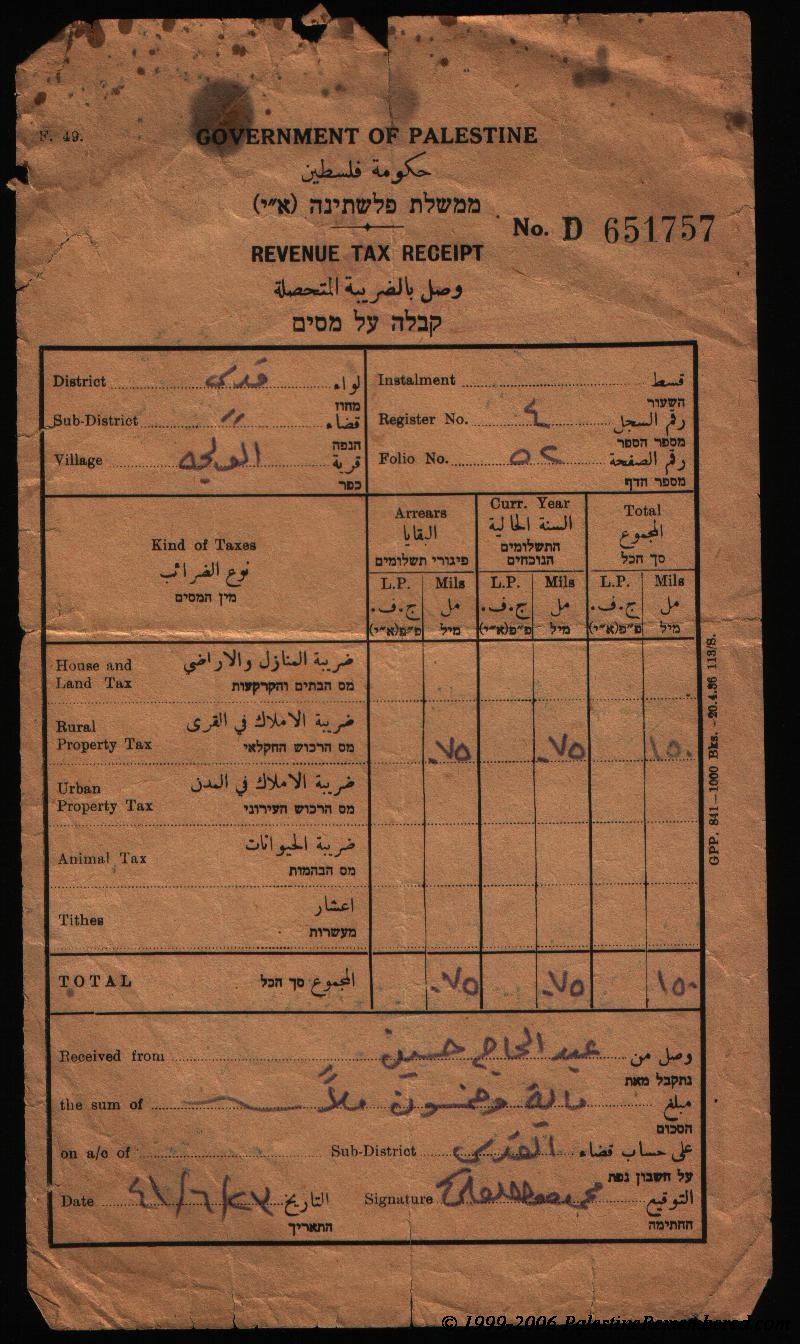 F. 49.
GOVERNMENT OF PALESTINE
حكومة فلسطين
ממשלת פלשתינה (א״י)
No. D 651757
REVENUE TAX RECEIPT
وصل بالضريبة المتحصلة
קבלה על מסים
District قدس لواء
מחוז
Sub-District " قضاء
הנפה
Village الولجه قرية
כפר
Instalment قسط
השעור
Register No. ٤ رقم السجل
מספר הספר
Folio No. ٥٢ رقم الصفحة
מספר הדף
Kind of Taxes
نوع الضرائب
מין המסים
Arrears
البقايا
פיגורי תשלומים
Curr. Year
السنة الحالية
התשלומים
הנוכחים
Total
المجموع
סך הכל
L.P. Mils L.P. Mils L.P. Mils
ج.ف. مل ج.ف. مل ج.ف. مل
פ״פ(א״י) מיל פ״פ(א״י) מיל פ״פ(א״י) מיל
House and ضريبة المنازل والاراضي
Land Tax מס הבתים והקרקעות
Rural ضريبة الاملاك في القرى
Property Tax מס הרכוש החקלאי ٠٧٥ ٠٧٥ ١٥٠
Urban ضريبة الاملاك في المدن
Property Tax מס הרכוש העירוני
Animal Tax ضريبة الحيوانات
מס הבהמות
Tithes اعشار
מעשרות
TOTAL المجموع סך הכל ٠٧٥ ٠٧٥ ١٥٠
Received from عبد الحاج حسين وصل من
נתקבל מאת
the sum of ماية وخمسون ملاً مبلغ
הסכום
on a/c of Sub-District القدس على حساب قضاء
על חשבון נפת
Date ٤١/٦/٢٣ التاريخ Signature التوقيع
התאריך החתימה
GPP. 841—1000 Bks.—20.4.36 113/S.
© 1999-2006 PalestineRemembered.com